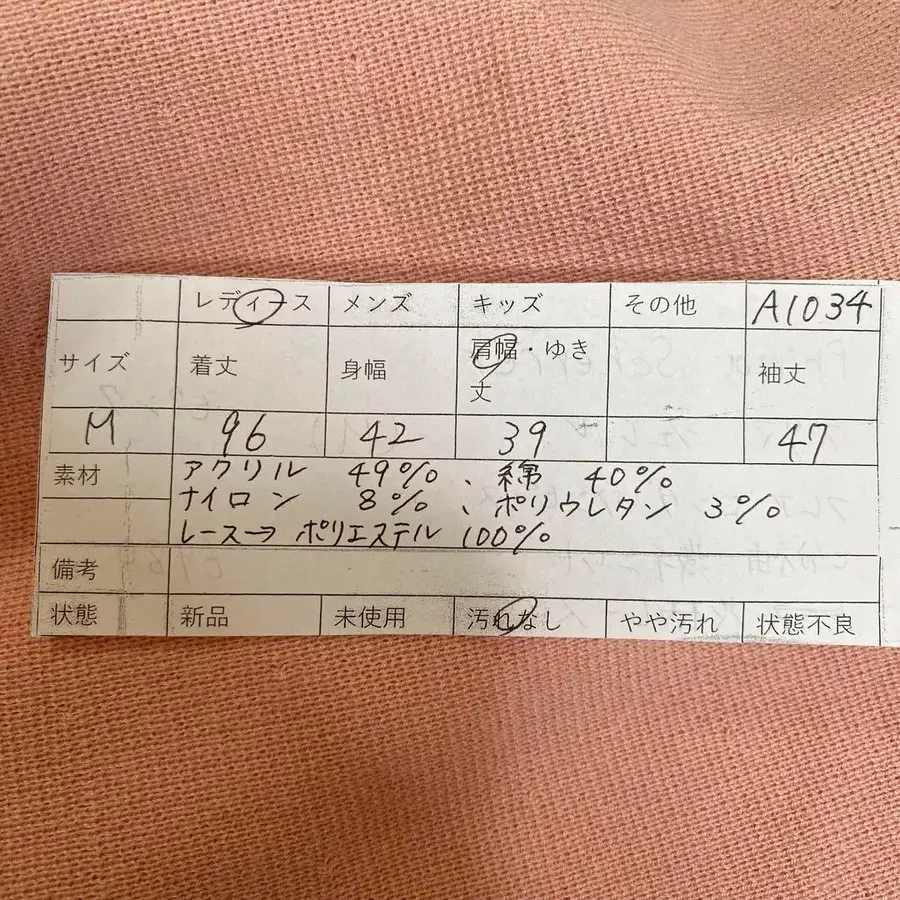 レディース メンズ キッズ その他 A1034
サイズ 着丈 身幅 肩幅・ゆき丈 袖丈
M 96 42 39 47
素材 アクリル 49%、綿 40%
ナイロン 8%、ポリウレタン 3%
レース→ポリエステル 100%
備考
状態 新品 未使用 汚れなし やや汚れ 状態不良